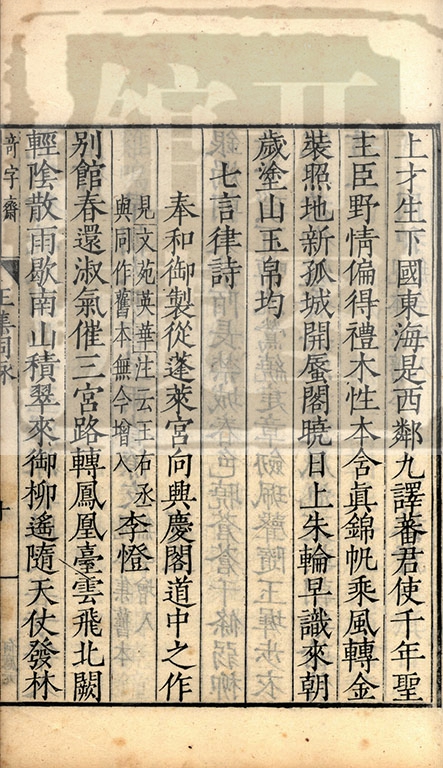 上才生下國東海是西鄰九譯蕃君使千年聖
主臣野情偏得禮木性本含眞錦帆乘風轉金
裝照地新孤城開蜃閣曉日上朱輪早識來朝
歲塗山玉帛均
七言律詩
奉和御製從蓬萊宮向興慶閣道中之作
見文苑英華注云王右丞
與同作舊本無今增入
李憕
別館春還淑氣催三宮路轉鳳凰臺雲飛北闕
輕陰散雨歇南山積翠來御柳遙隨天仗發林
奇字齋
王集同
十